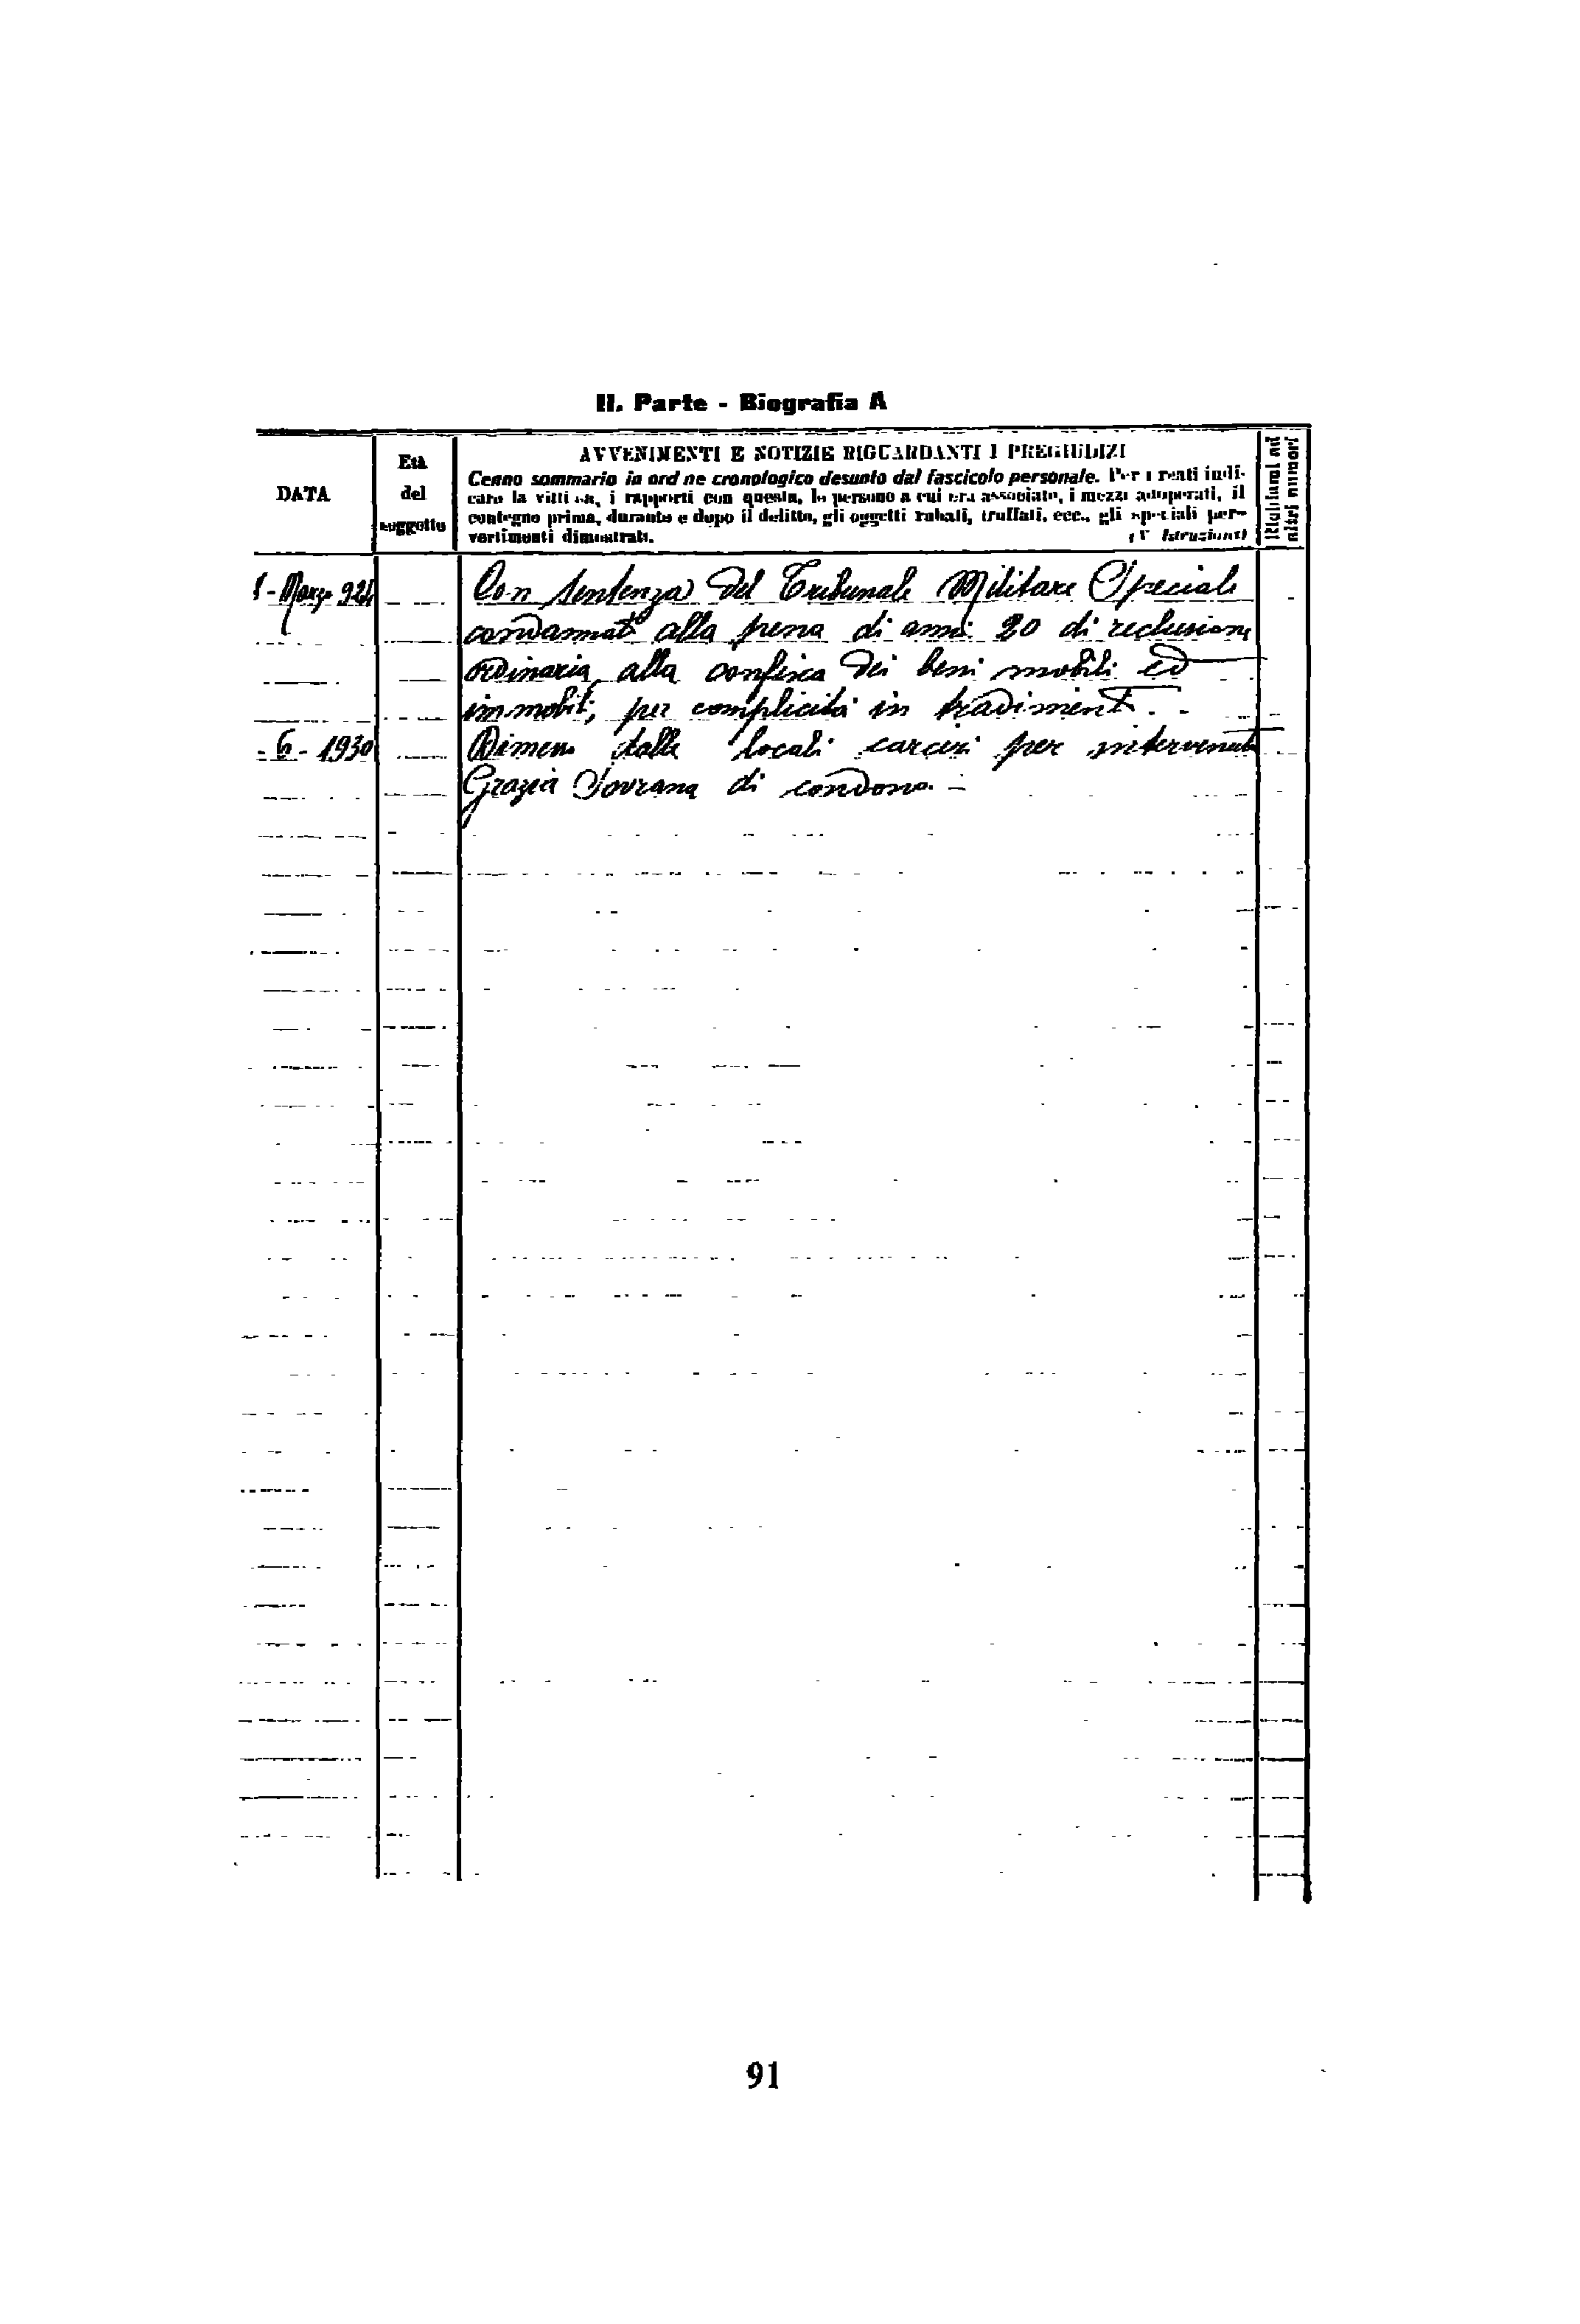 II. Parte - Biografia A
DATA
Età
del
soggetto
AVVENIMENTI E NOTIZIE RIGUARDANTI I PREGIUDIZI
Cenno sommario in ordine cronologico desunto dal fascicolo personale. Per i reati indi-
care la vittima, i rapporti con questa, le persone a cui era associato, i mezzi adoperati, il
contegno prima, durante e dopo il delitto, gli oggetti rubati, truffati, ecc., gli speciali per-
vertimenti dimostrati. (V. Istruzioni)
Richiami ad
altri numeri
Marzo Con sentenza del Tribunale Militare Speciale
condannato alla pena di anni 20 di reclusione
ordinaria, alla confisca dei beni mobili ed
immobili, per complicità in tradimento.
- 6 - 1930 Dimesso dalle locali carceri per intervenuta
Grazia Sovrana di condono. -
91